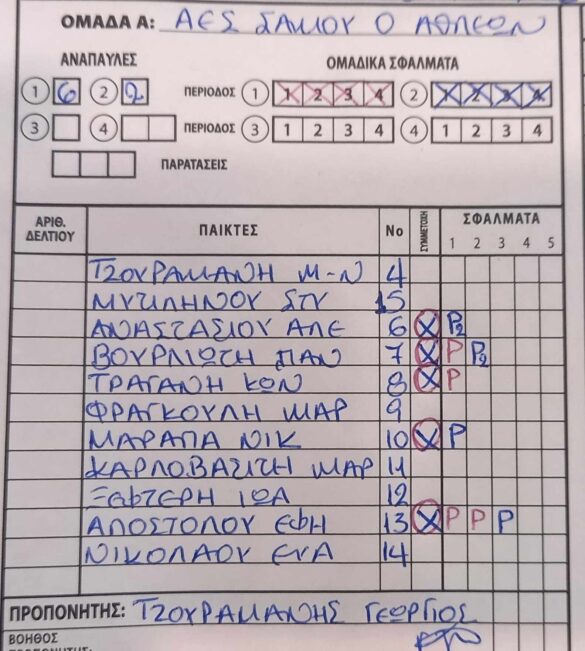 ΟΜΑΔΑ Α: ΑΕΣ ΣΑΜΟΥ Ο ΑΘΛΕΩΝ
ΑΝΑΠΑΥΛΕΣ ΟΜΑΔΙΚΑ ΣΦΑΛΜΑΤΑ
1 6 2 2 ΠΕΡΙΟΔΟΣ 1 1 2 3 4 2 1 2 3 4
3 4 ΠΕΡΙΟΔΟΣ 3 1 2 3 4 4 1 2 3 4
ΠΑΡΑΤΑΣΕΙΣ
ΑΡΙΘ. ΔΕΛΤΙΟΥ ΠΑΙΚΤΕΣ Νο ΣΥΜΜΕΤΟΧΗ ΣΦΑΛΜΑΤΑ
1 2 3 4 5
ΤΖΟΥΡΑΜΑΝΗ Μ-Ν 4
ΜΥΤΙΛΗΝΟΥ ΣΤΥ 15
ΑΝΑΣΤΑΣΙΟΥ ΑΛΕ 6 X P2
ΒΟΥΡΛΙΩΤΗ ΠΑΝ 7 X P P2
ΤΡΑΓΑΝΗ ΚΩΝ 8 X P
ΦΡΑΓΚΟΥΛΗ ΜΑΡ 9
ΜΑΡΑΠΑ ΝΙΚ 10 X P
ΚΑΡΛΟΒΑΣΙΤΗ ΜΑΡ 11
ΞΕΦΤΕΡΗ ΙΩΑ 12
ΑΠΟΣΤΟΛΟΥ ΕΦΗ 13 X P P P
ΝΙΚΟΛΑΟΥ ΕΥΑ 14
ΠΡΟΠΟΝΗΤΗΣ: ΤΖΟΥΡΑΜΑΝΗΣ ΓΕΩΡΓΙΟΣ
ΒΟΗΘΟΣ